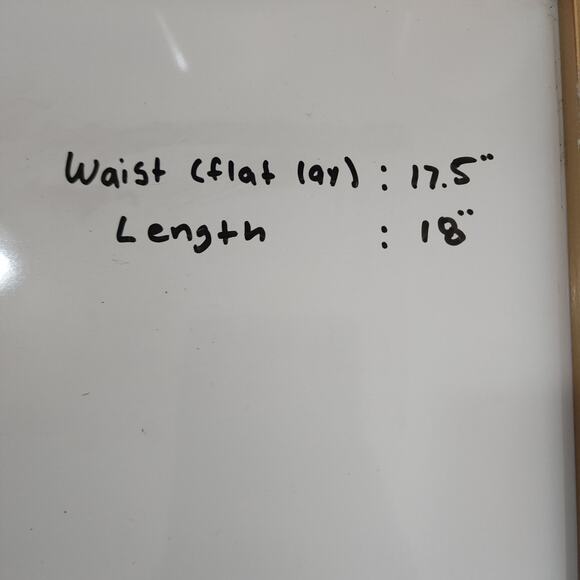 Waist (flat lay) : 17.5"
Length : 18"